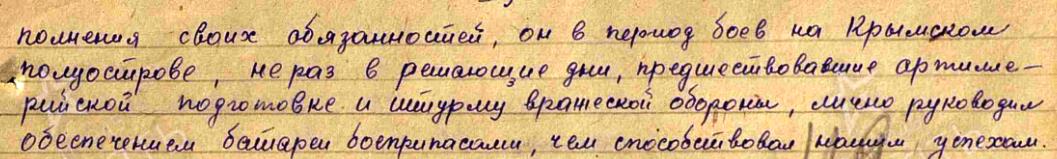 полнения своих обязанностей, он в период боев на Крымском
полуострове, не раз в решающие дни, предшествовавшие артилле-
рийской подготовке и штурму вражеской обороны, лично руководил
обеспечением батареи боеприпасами, чем способствовал нашим успехам.